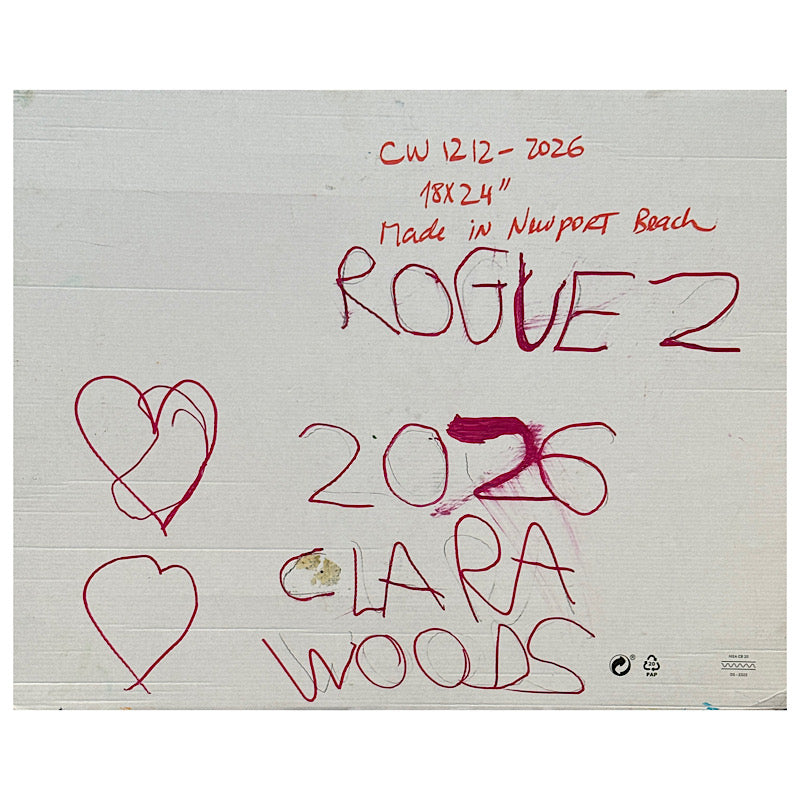 CW 1212-2026
18X24"
Made in Newport Beach
ROGUE 2
2026
CLARA
WOODS
®
20
PAP